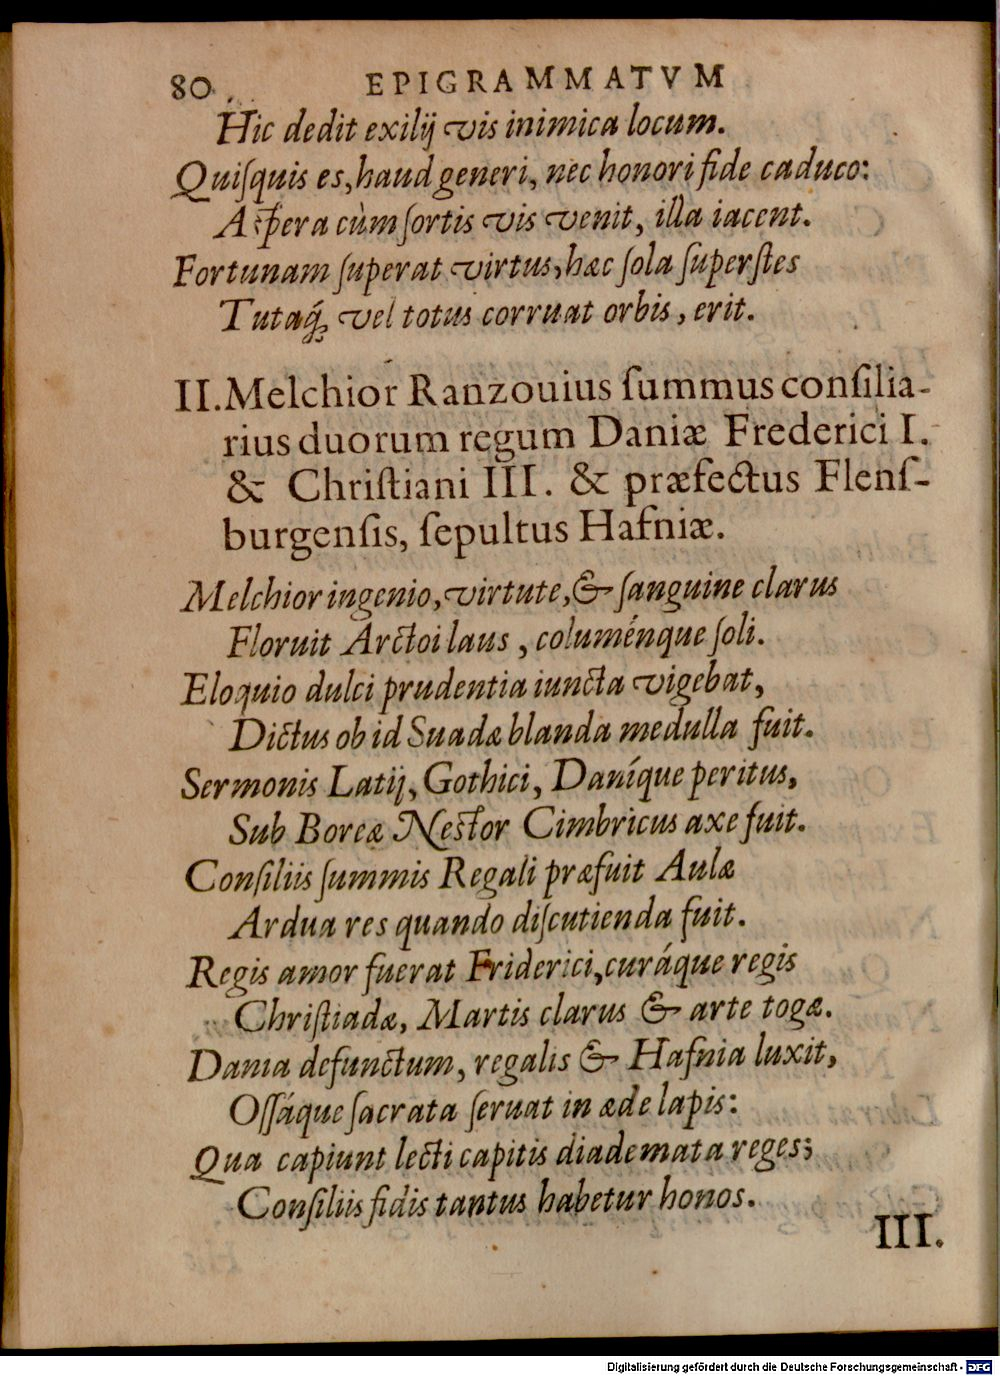 80 EPIGRAMMATVM
Hic dedit exilij vis inimica locum.
Quiſquis es, haud generi, nec honori fide caduco:
Aſpera cùm ſortis vis venit, illa iacent.
Fortunam ſuperat virtus, hæc ſola ſuperſtes
Tutaq́; vel totus corruat orbis, erit.
II. Melchior Ranzouius ſummus conſilia-
rius duorum regum Daniæ Frederici I.
& Chriſtiani III. & præfectus Flenſ-
burgenſis, ſepultus Hafniæ.
Melchior ingenio, virtute, & ſanguine clarus
Floruit Arctoi laus, columénque ſoli.
Eloquio dulci prudentia iuncta vigebat,
Dictus ob id Suadæ blanda medulla fuit.
Sermonis Latij, Gothici, Daníque peritus,
Sub Boreæ Neſtor Cimbricus axe fuit.
Conſiliis ſummis Regali præfuit Aulæ
Ardua res quando diſcutienda fuit.
Regis amor fuerat Friderici, curáque regis
Chriſtiadæ, Martis clarus & arte togæ.
Dania defunctum, regalis & Hafnia luxit,
Oſſáque ſacrata ſeruat in æde lapis:
Qua capiunt lecti capitis diademata reges;
Conſiliis fidis tantus habetur honos.
III.
Digitalisierung gefördert durch die Deutsche Forschungsgemeinschaft - DFG